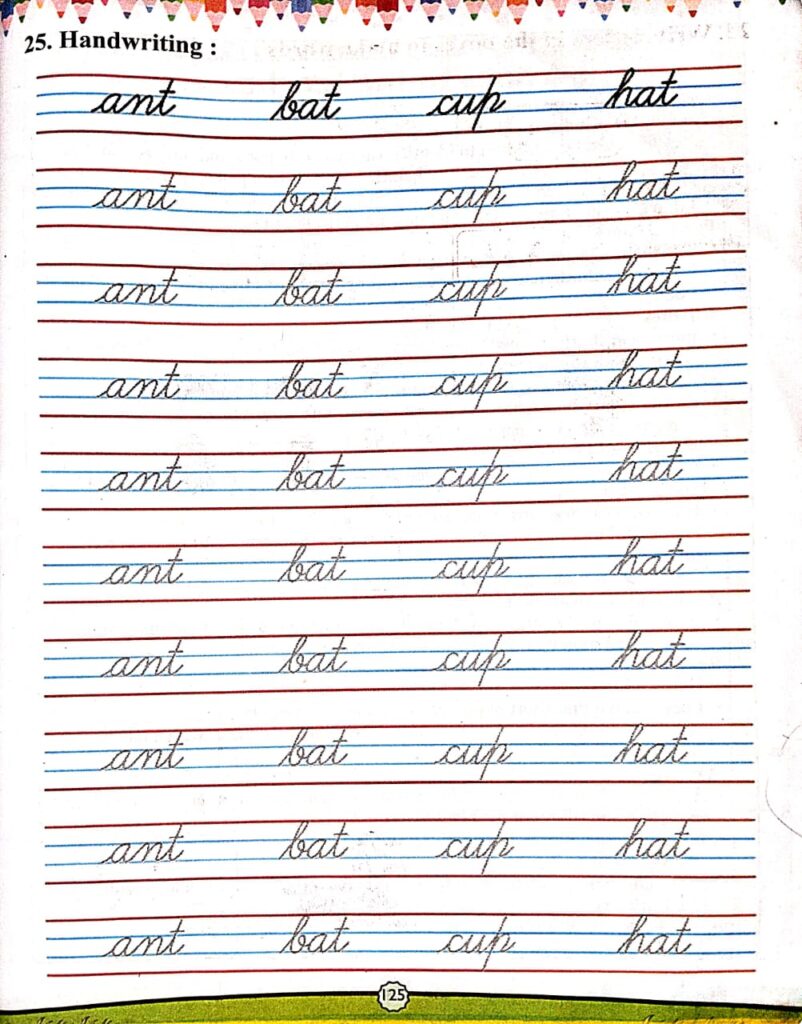 25. Handwriting :
ant bat cup hat
ant bat cup hat
ant bat cup hat
ant bat cup hat
ant bat cup hat
ant bat cup hat
ant bat cup hat
ant bat cup hat
ant bat cup hat
ant bat cup hat
125